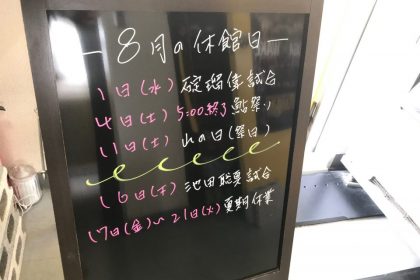 －8月の休館日－
1日(水) 碇瑠偉試合
4日(土) 5:00終了 鮎祭り
11日(土) 山の日(祭日)
16日(木) 池田聡吏試合
17日(金)〜21日(火) 夏期休業